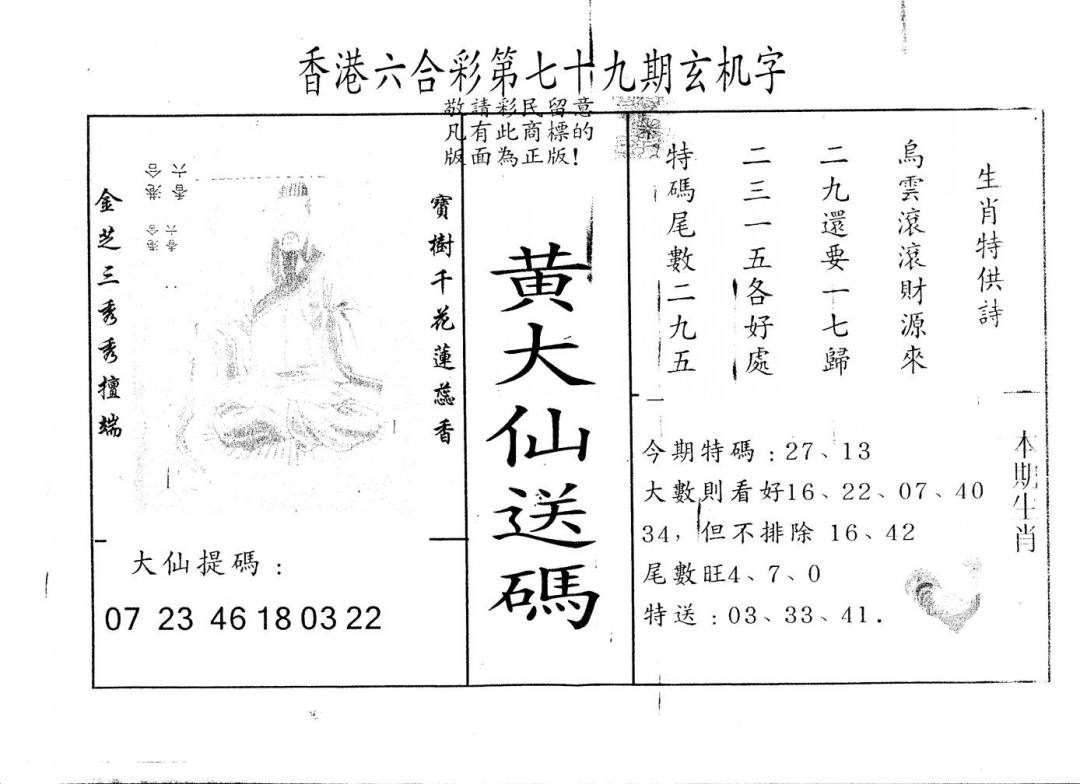 香港六合彩第七十九期玄机字
敬請彩民留意
凡有此商標的
版面為正版!
香六
港合
香六
港合
寶樹千花蓮蕊香
金芝三秀秀擅端
大仙提碼:
07 23 46 18 03 22
黃大仙送碼
生肖特供詩
烏雲滾滾財源來
二九還要一七歸
二三一五各好處
特碼尾數二九五
本期生肖
今期特碼:27、13
大數則看好16、22、07、40
34,但不排除 16、42
尾數旺4、7、0
特送:03、33、41.